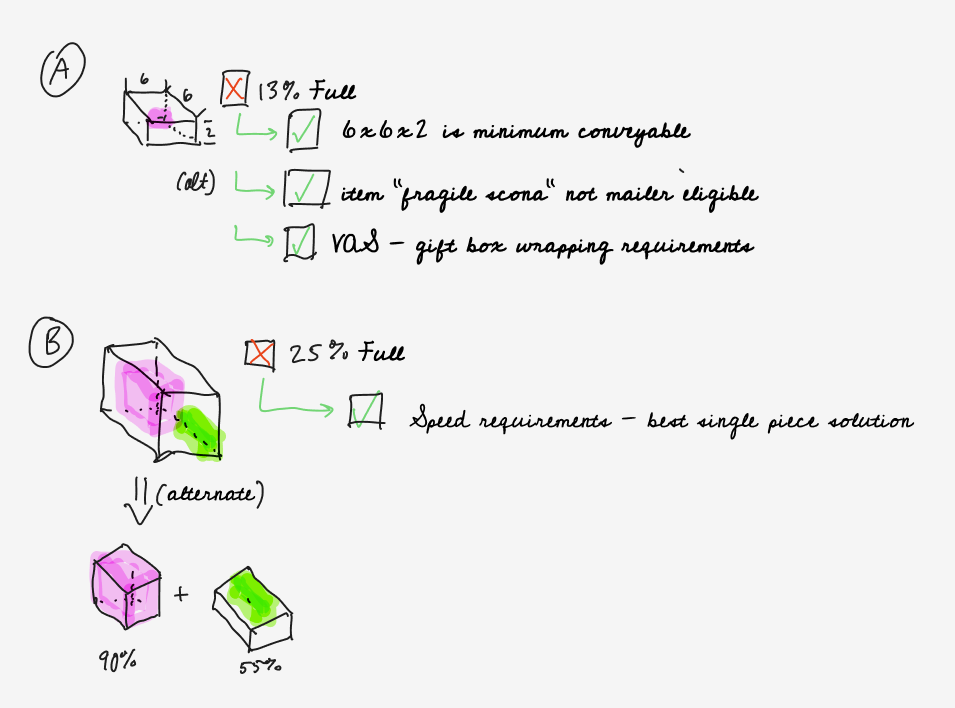 A
6
6
2
13% Full
6x6x2 is minimum conveyable
(alt)
item "fragile scona" not mailer eligible
VAS - gift box wrapping requirements
B
25% Full
Speed requirements - best single piece solution
(alternate)
+
90%
55%